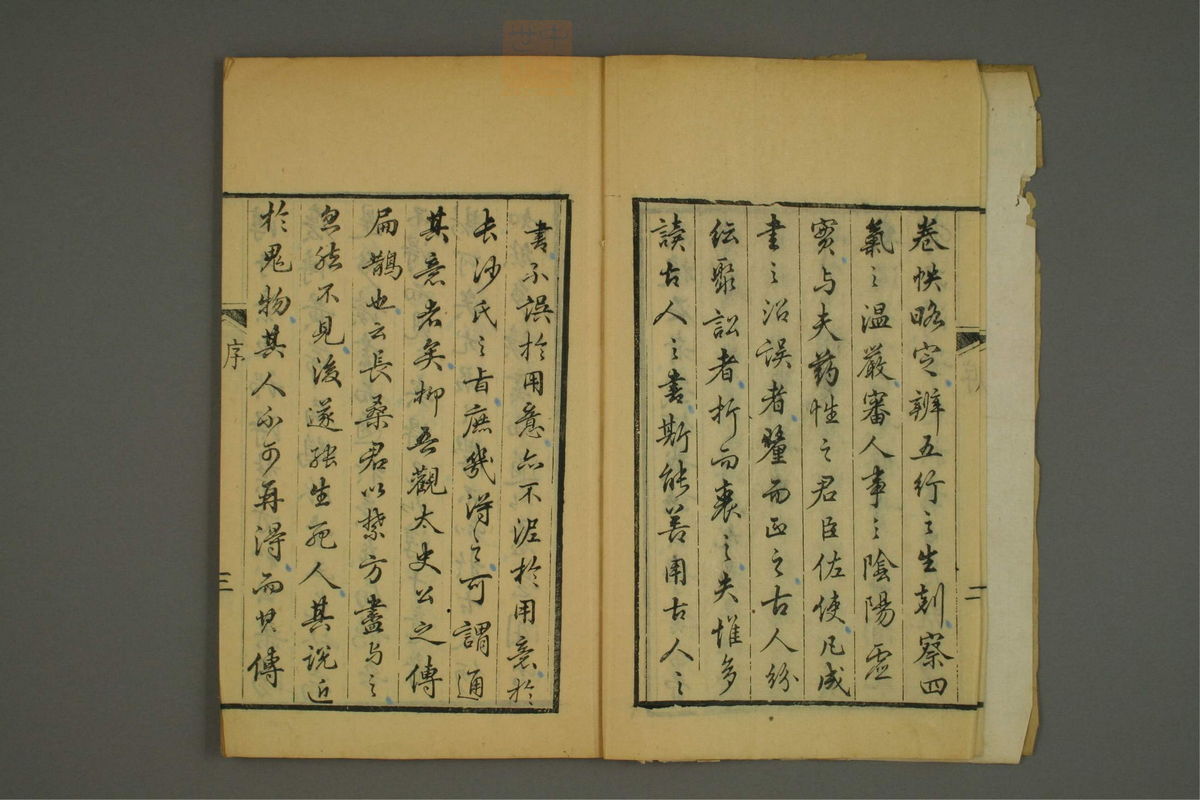 卷帙略定辨五行之生剋察四
氣之温嚴審人事之陰陽虛
實与夫药性之君臣佐使凡成
書之沿誤者釐而正之古人紛
紜聚訟者析而衷之夫惟多
讀古人之書斯能善用古人之
二
書不誤於用意亦不泥於用意於
長沙氏之旨庶幾得之可謂通
其意者矣抑吾觀太史公之傳
扁鵲也云長桑君以禁方盡与之
忽然不見後遂能生死人其説近
於鬼物其人不可再得而其傳
序
三